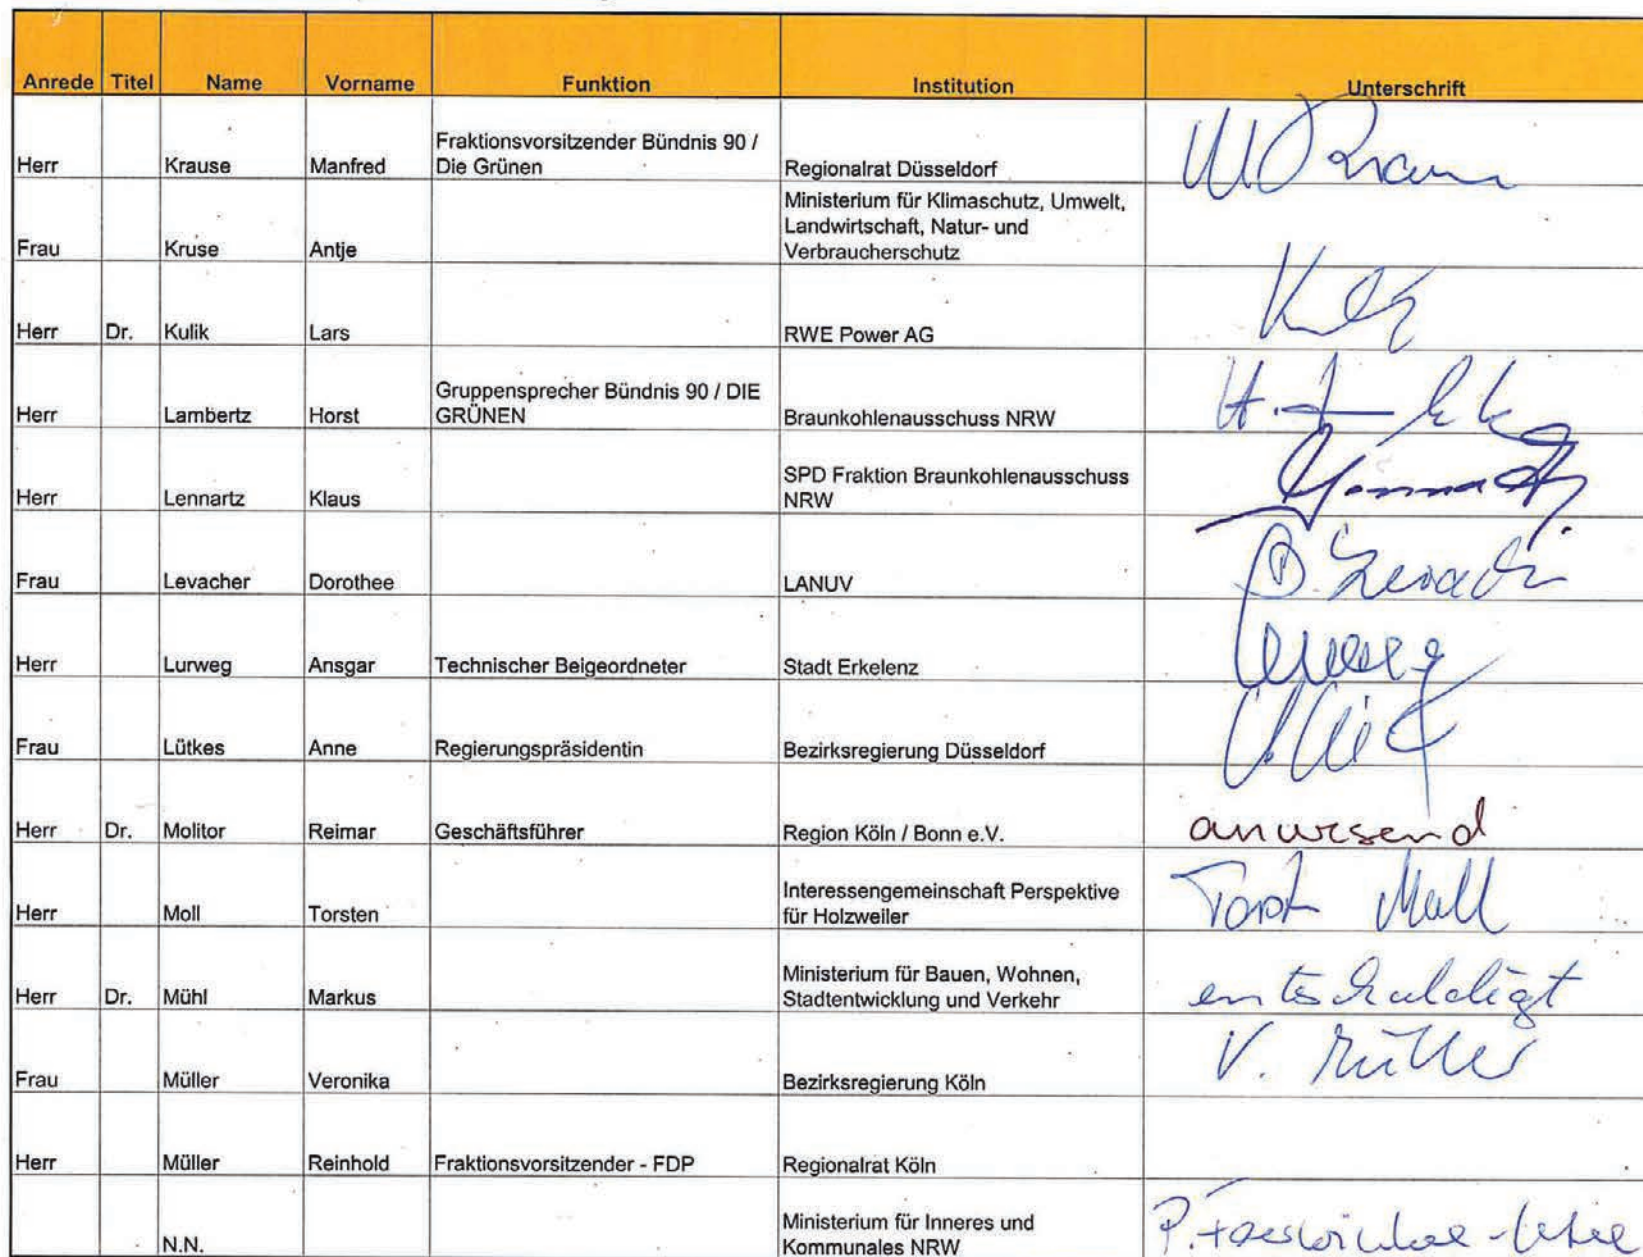 Anrede Titel Name Vorname Funktion Institution Unterschrift
Herr Krause Manfred Fraktionsvorsitzender Bündnis 90 /
Die Grünen Regionalrat Düsseldorf
Frau Kruse Antje Ministerium für Klimaschutz, Umwelt,
Landwirtschaft, Natur- und
Verbraucherschutz
Herr Dr. Kulik Lars RWE Power AG
Herr Lambertz Horst Gruppensprecher Bündnis 90 / DIE
GRÜNEN Braunkohlenausschuss NRW
Herr Lennartz Klaus SPD Fraktion Braunkohlenausschuss
NRW
Frau Levacher Dorothee LANUV
Herr Lurweg Ansgar Technischer Beigeordneter Stadt Erkelenz
Frau Lütkes Anne Regierungspräsidentin Bezirksregierung Düsseldorf
Herr Dr. Molitor Reimar Geschäftsführer Region Köln / Bonn e.V. anwesend
Herr Moll Torsten Interessengemeinschaft Perspektive
für Holzweiler Moll
Herr Dr. Mühl Markus Ministerium für Bauen, Wohnen,
Stadtentwicklung und Verkehr entschuldigt
Frau Müller Veronika Bezirksregierung Köln V. Müller
Herr Müller Reinhold Fraktionsvorsitzender - FDP Regionalrat Köln
N.N. Ministerium für Inneres und
Kommunales NRW